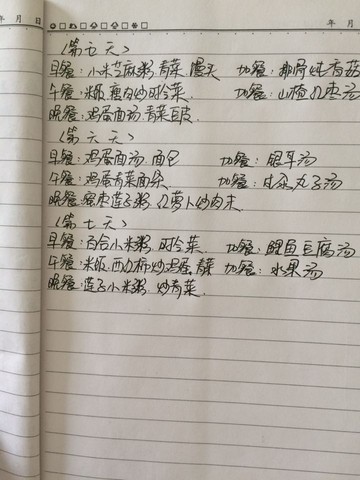 月 日
年 月
(第七天)
早餐:小米芝麻粥、青菜、馒头 加餐:排骨炖香菇
午餐:米饭、瘦肉炒时令菜 加餐:山楂红枣汤
晚餐:鸡蛋面汤、青菜豆皮
(第六天)
早餐:鸡蛋面汤、面包 加餐:银耳汤
午餐:鸡蛋青菜面条 加餐:丸子汤
晚餐:莲子粥、胡萝卜炒肉末
(第七天)
早餐:百合小米粥、时令菜 加餐:鲤鱼豆腐汤
午餐:米饭、西红柿炒鸡蛋、青菜 加餐:水果汤
晚餐:莲子小米粥、炒青菜